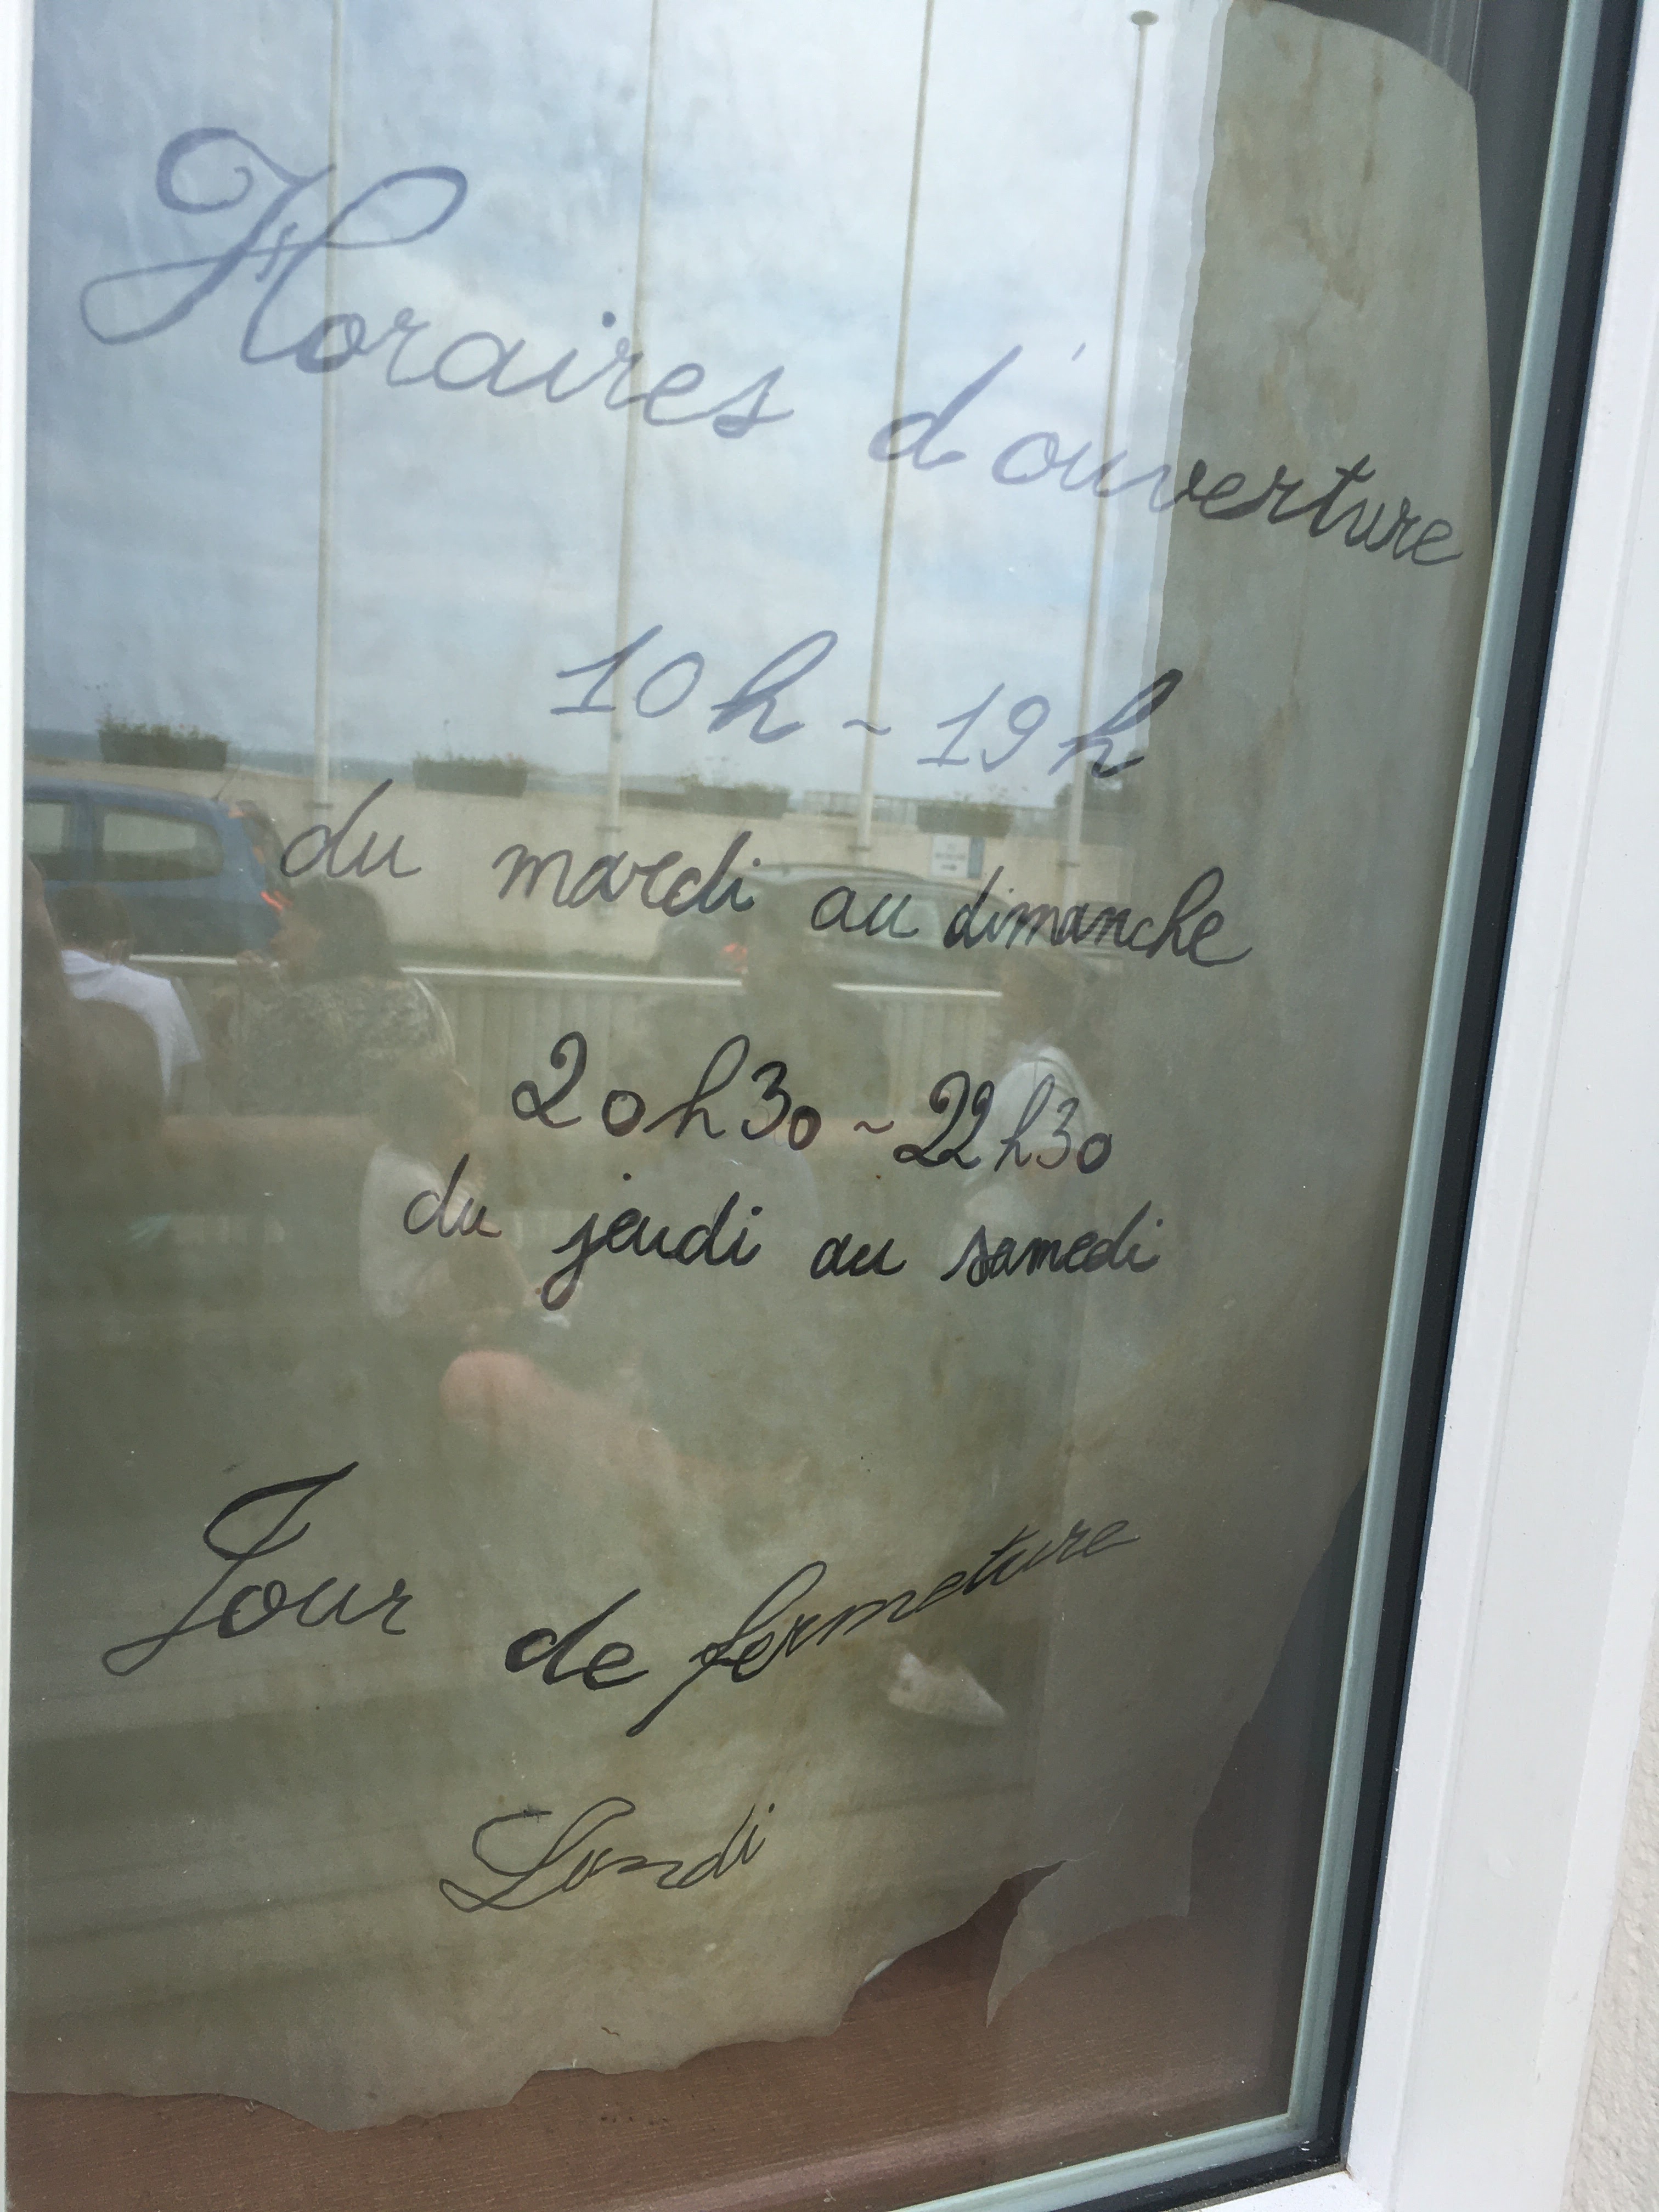 Horaires d'ouverture
10h ~ 19h
du mardi au dimanche
20h30 ~ 22h30
du jeudi au samedi
Jour de fermeture
Lundi